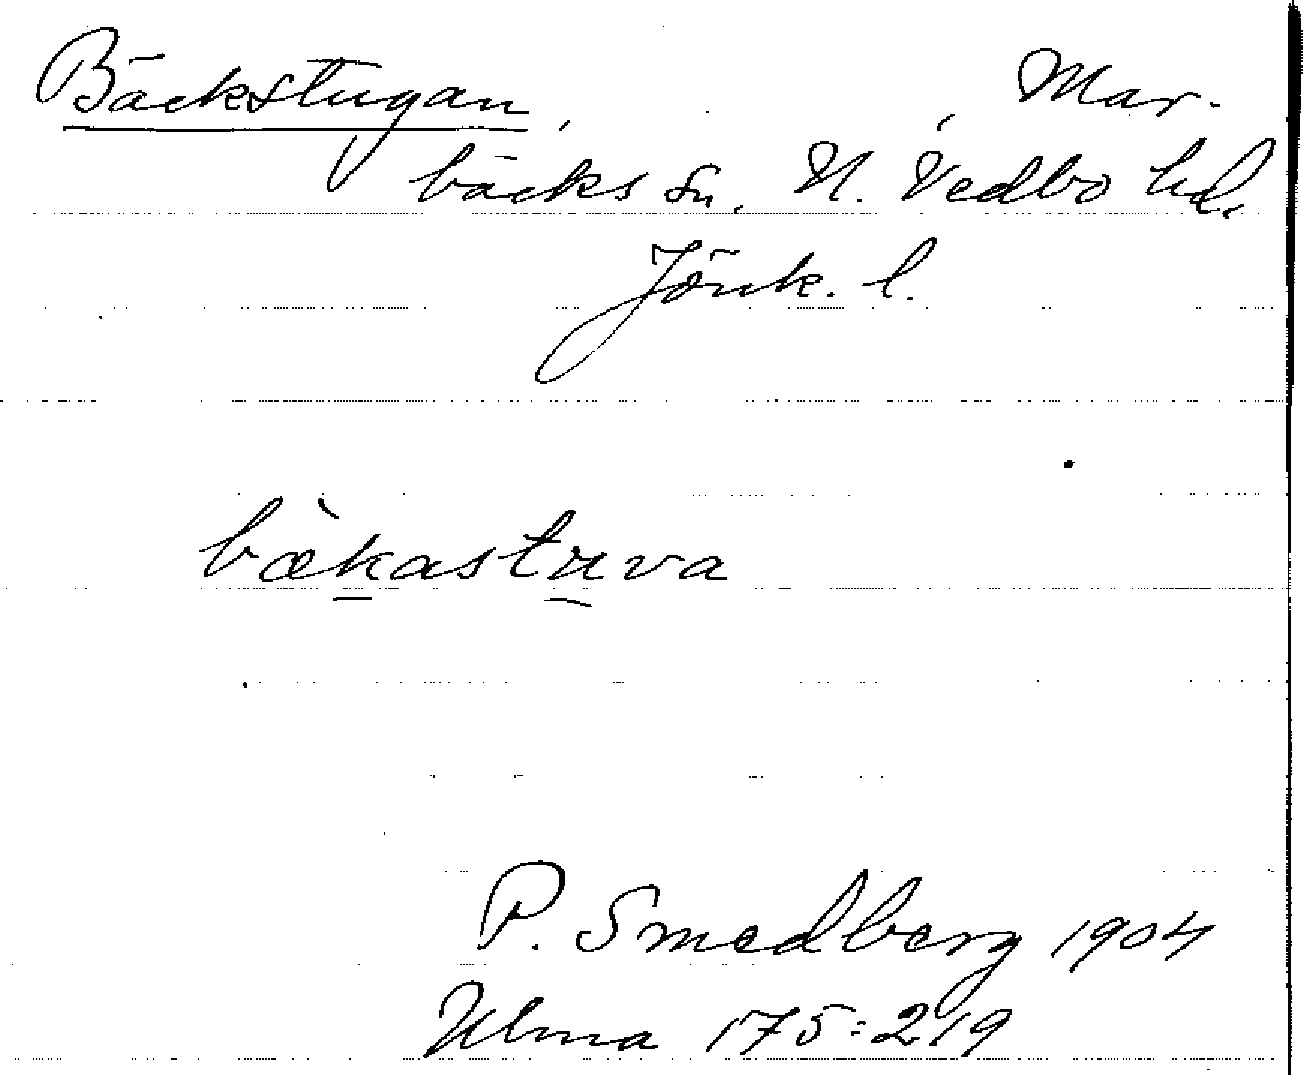 Bäckstugan, Mar-
bäcks sn. N. Vedbo hd.
Jönk. l.
bæ̀kastuva
P. Smedberg 1904
Ulma 175:219